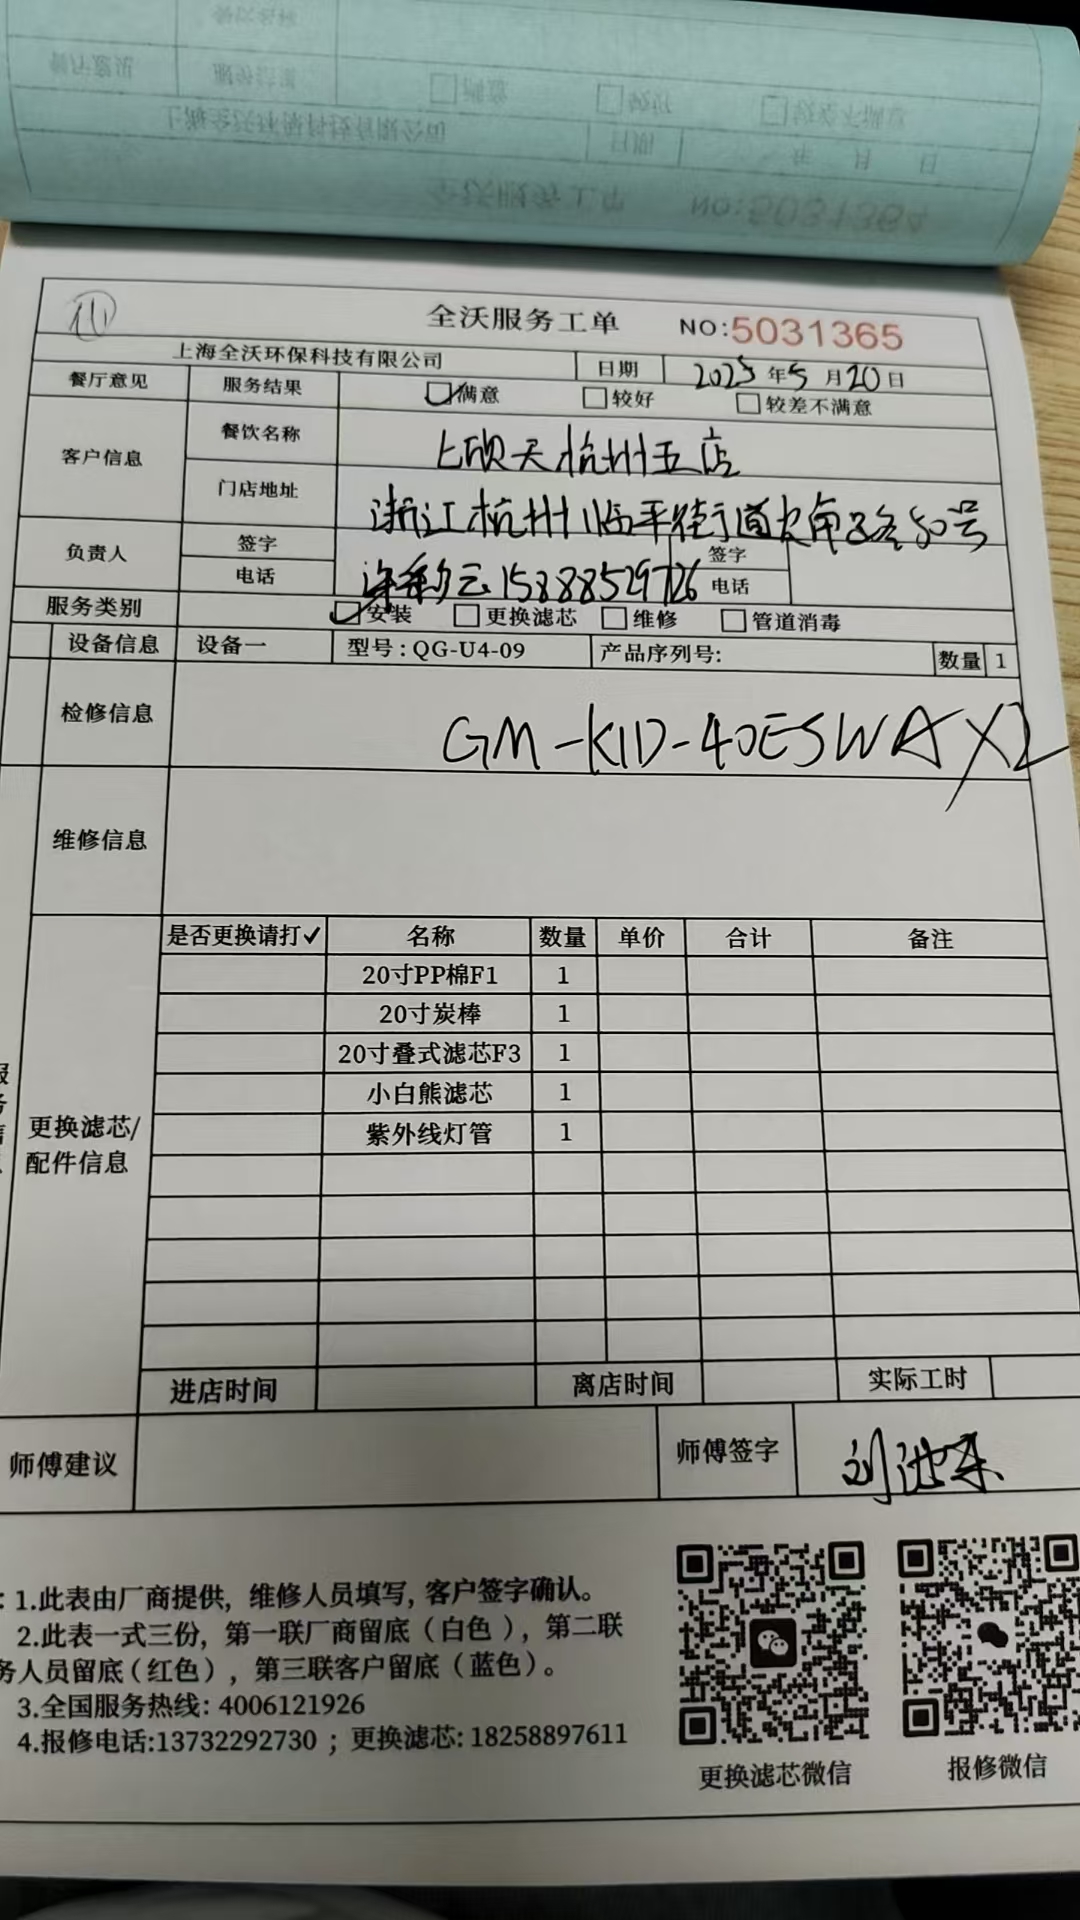 全沃服务工单 NO:5031365
上海全沃环保科技有限公司 日期 2025年5月20日
餐厅意见 服务结果 满意 较好 较差不满意
客户信息 餐饮名称 上欣天杭州五店
门店地址 浙江杭州临平街道 路50号
负责人 签字 签字
电话 15888529726 电话
服务类别 安装 更换滤芯 维修 管道消毒
设备信息 设备一 型号:QG-U4-09 产品序列号: 数量 1
检修信息 GM-KID-40ESWAX2
维修信息
是否更换请打✓ 名称 数量 单价 合计 备注
20寸PP棉F1 1
20寸炭棒 1
20寸叠式滤芯F3 1
小白熊滤芯 1
紫外线灯管 1
更换滤芯/
配件信息
进店时间 离店时间 实际工时
师傅建议 师傅签字 刘池东
:1.此表由厂商提供,维修人员填写,客户签字确认。
2.此表一式三份,第一联厂商留底(白色),第二联
务人员留底(红色),第三联客户留底(蓝色)。
3.全国服务热线:4006121926
4.报修电话:13732292730 ;更换滤芯:18258897611
更换滤芯微信 报修微信